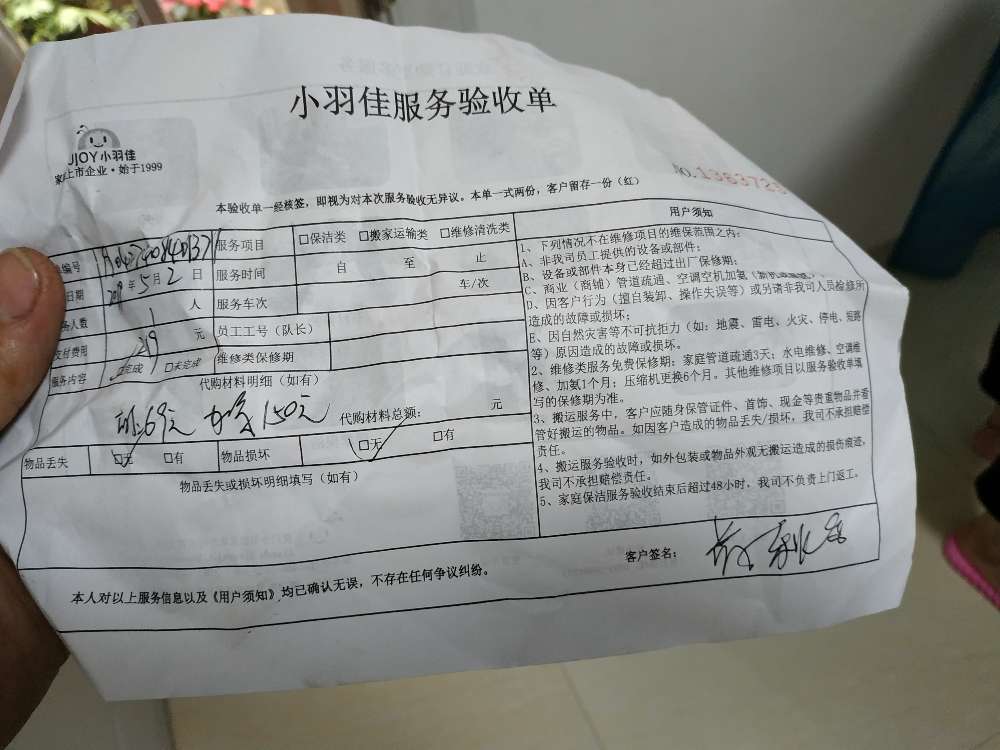 小羽佳服务验收单
JJOY小羽佳
家 上市企业·始于1999
NO.1363729
本验收单一经核签，即视为对本次服务验收无异议。本单一式两份，客户留存一份（红）
编号
服务项目 □保洁类 □搬家运输类 □维修清洗类
日期 年5月2日 服务时间 自 至 止
人数 1 人 服务车次 车/次
支付费用 219 元 员工工号（队长）
服务内容 □完成 □未完成 维修类保修期
代购材料明细（如有）
69元 150元 代购材料总额： 元
物品丢失 □无 □有 物品损坏 □无 □有
物品丢失或损坏明细填写（如有）
用户须知
1、下列情况不在维修项目的维保范围之内：
A、非我司员工提供的设备或部件；
B、设备或部件本身已经超过出厂保修期；
C、商业（商铺）管道疏通、空调空机加氨
D、因客户行为（擅自装卸、操作失误等）或另请非我司人员检修所
造成的故障或损坏；
E、因自然灾害等不可抗拒力（如：地震、雷电、火灾、停电、短路
等）原因造成的故障或损坏。
2、维修类服务免费保修期：家庭管道疏通3天；水电维修、空调维
修、加氨1个月；压缩机更换6个月。其他维修项目以服务验收单填
写的保修期为准。
3、搬运服务中，客户应随身保管证件、首饰、现金等贵重物品并看
管好搬运的物品。如因客户造成的物品丢失/损坏，我司不承担赔偿
责任。
4、搬运服务验收时，如外包装或物品外观无搬运造成的损伤痕迹，
我司不承担赔偿责任。
5、家庭保洁服务验收结束后超过48小时，我司不负责上门返工。
客户签名：
本人对以上服务信息以及《用户须知》均已确认无误，不存在任何争议纠纷。